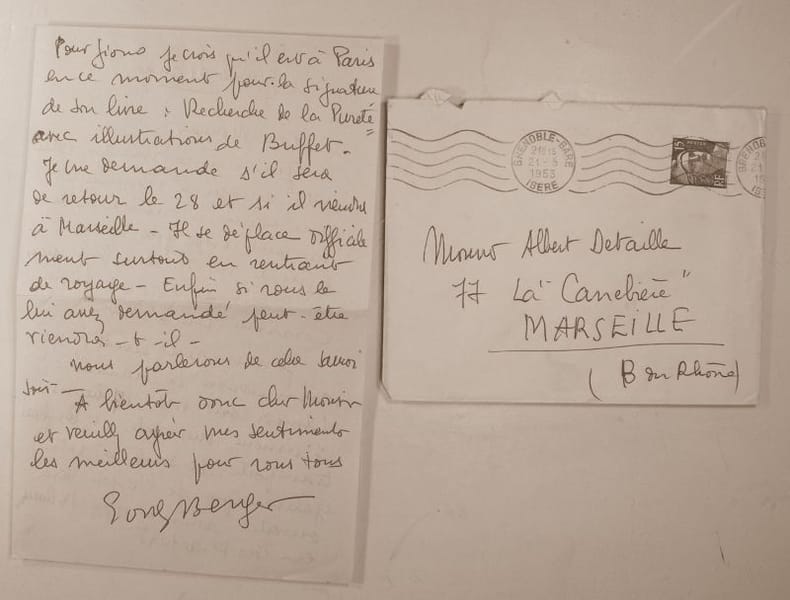 Pour Giono je crois qu'il est à Paris
en ce moment pour la signature
de son livre : Recherche de la Pureté"
avec illustrations de Buffet -
Je me demande s'il sera
de retour le 28 et si il viendra
à Marseille - Il se déplace difficile
ment surtout en rentrant
de voyage - Enfin si vous le
lui avez demandé peut-être
viendra-t-il -
Nous parlerons de cela samedi
soir -
A bientôt donc cher Monsieur
et veuillez agréer mes sentiments
les meilleurs pour vous tous
Berger
GRENOBLE-GARE
21H15
21-5
1953
ISERE
15
POSTES
RF
GRENOB
Monsieur Albert Detaille
77 La "Canebière"
MARSEILLE
(B du Rhône)